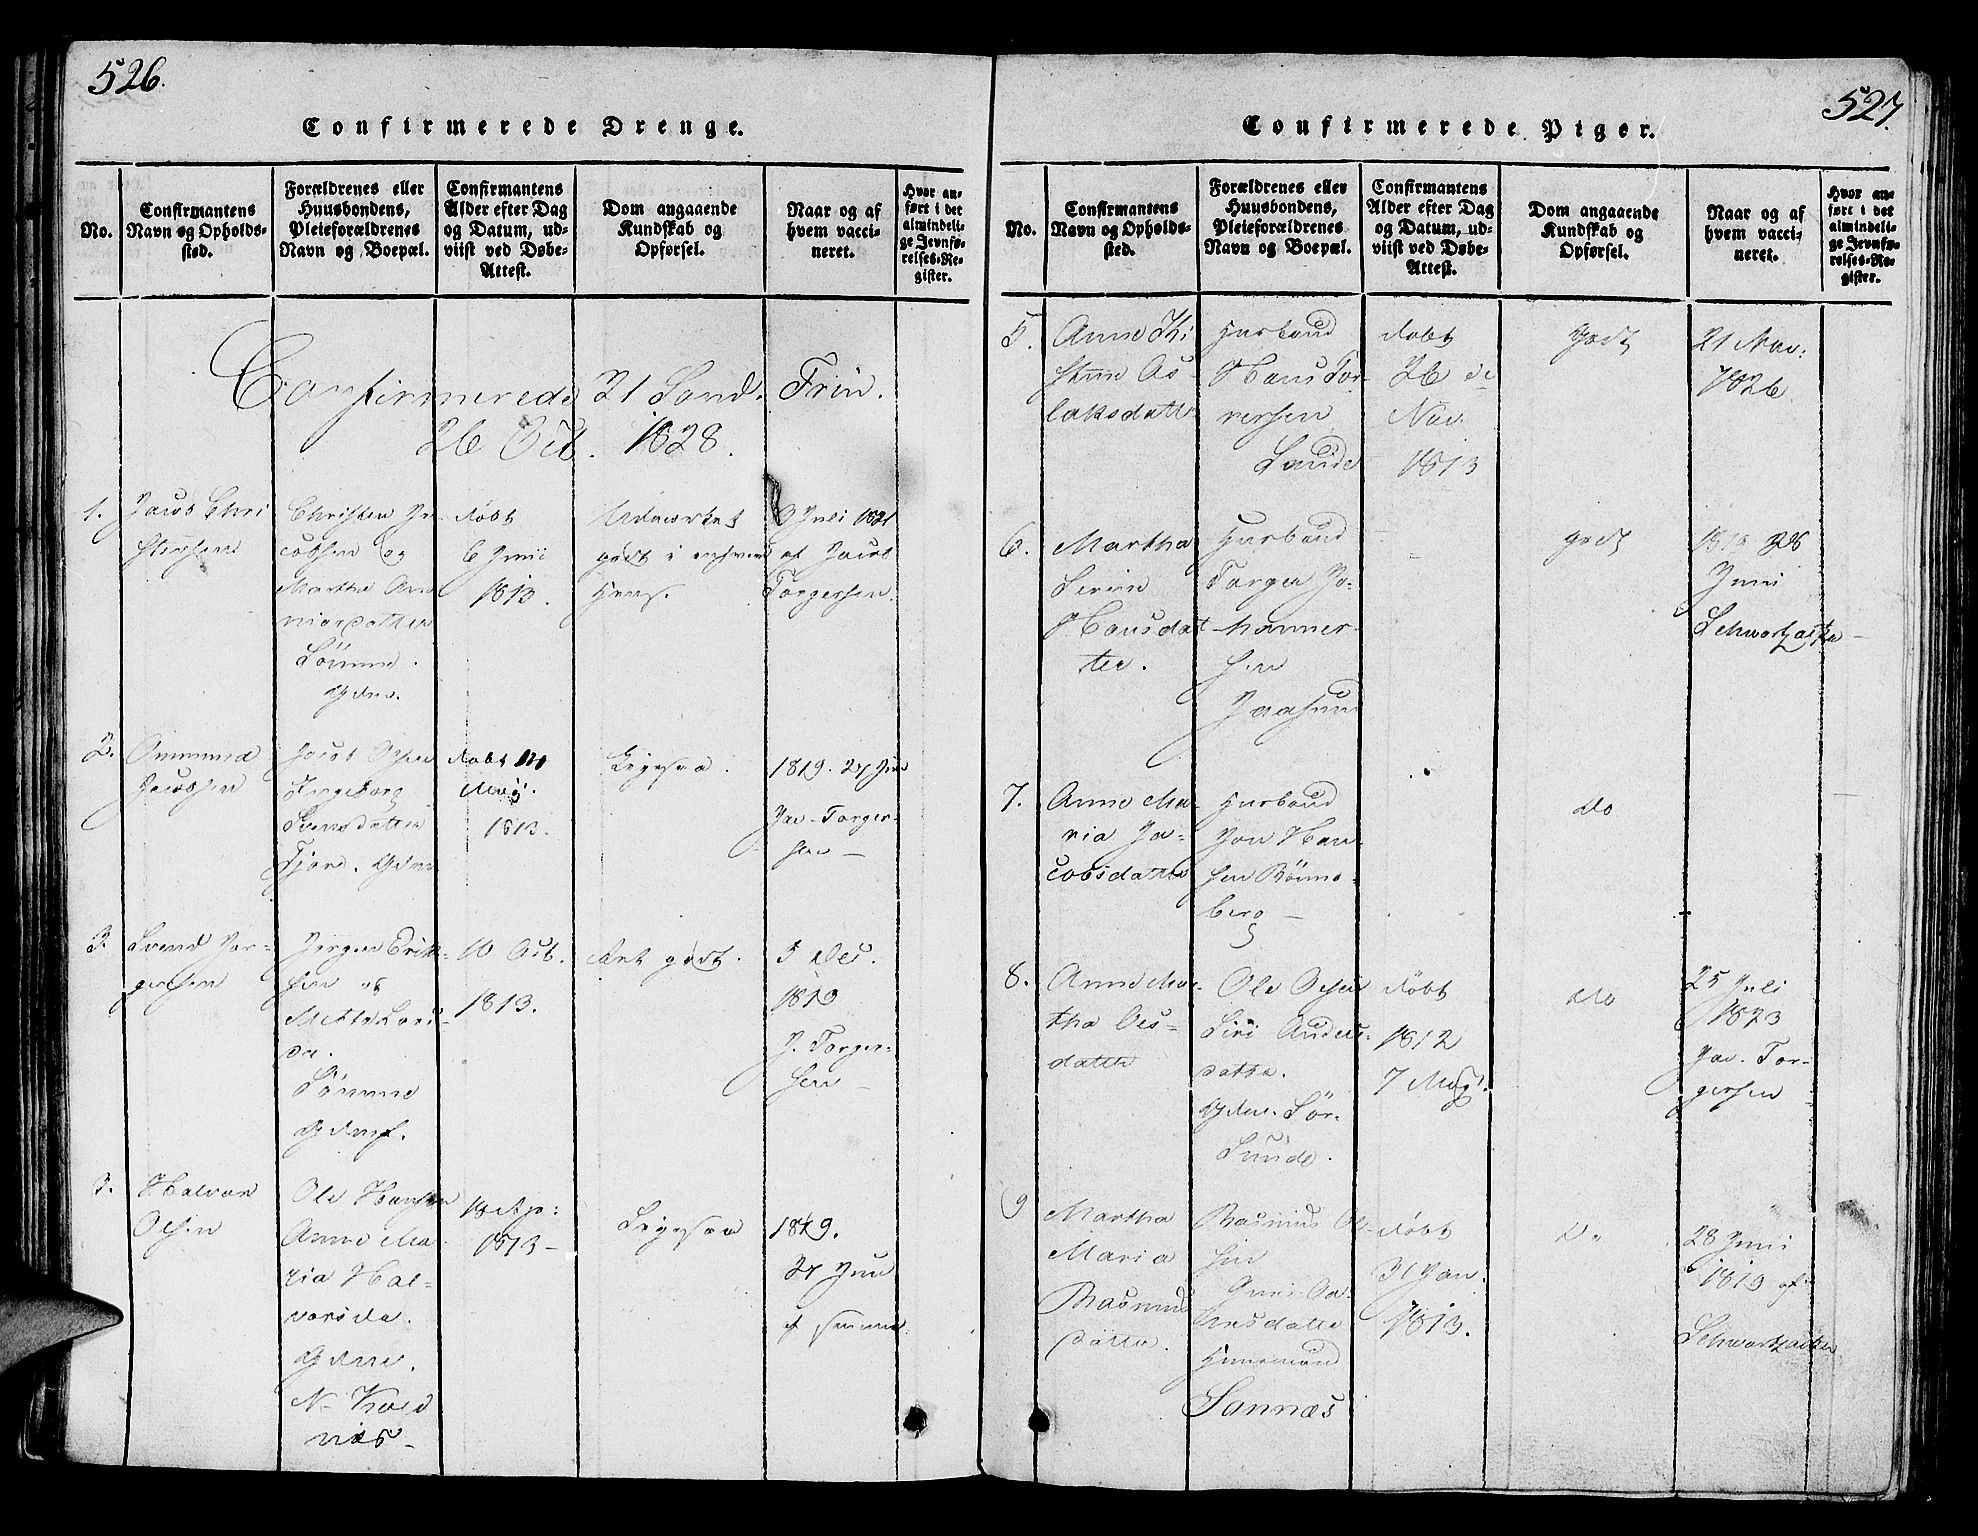 526.
Confirmerede Drenge.
No.
Confirmantens Navn og Opholdssted.
Forældrenes eller Huusbondens, Pleieforældrenes Navn og Boepæl.
Confirmantens Alder efter Dag og Datum, udviist ved Døbe-Attest.
Dom angaaende Kundskab og Opførsel.
Naar og af hvem vaccineret.
Hvor anført i det almindelige Jevnførelses-Register.
Confirmerede 21 Sønd. Trin.
26 Oct. 1828.
1.
Jacob Chri
stensen
Christen Ja-
cobsen og
Martha
Sømme
døbt
6 Junii
1813.
godt i
Juli 1821
af Jacob
Torgersen.
2.
Ommund
Jacobsen
Jacob Olsen
Ingeborg
Svensdatter
Tjora.
døbt
Maj.
1813.
Ligesaa.
1819. 27 Jun
Jac. Torger-
sen
3.
Svend Jør-
gensen
Jørgen Erik-
sen og
Mette Lars-
da.
Sømme
10 Oct.
1813.
godt.
5 Dec.
1819
J. Torger-
sen
3.
Halvor
Olsen
Ole Hansen
Anne Ma
ria Hal-
vorsda.
18 Ap:
1813
Ligesaa
1819.
27 Jun
af samme
527.
Confirmerede Piger.
No.
Confirmantens Navn og Opholdssted.
Forældrenes eller Huusbondens, Pleieforældrenes Navn og Boepæl.
Confirmantens Alder efter Dag og Datum, udviist ved Døbe-Attest.
Dom angaaende Kundskab og Opførsel.
Naar og af hvem vaccineret.
Hvor anført i det almindelige Jevnførelses-Register.
5.
Anne Ki
stine As-
laksdatt
Husbond
Hans Tor-
Sunde
døbt
26 de
Nov.
1813
Godt
21 Nov:
1826
6.
Martha
Serine
Hansdat
ter.
Husbond
Torger Jo-
hannes-
sen
Jaasund
godt
28
Juni
Schwartzacker
7.
Anne Ma-
ria Ja-
cobsdatter
Husbond
Jon Han-
sen Rønne-
berg
do
8.
Anne Mar-
tha Ols-
datter
Ole Olsen
Siri Anders-
datter.
Sør-
Sunde.
døbt
1812
7 Maj.
do
25 Juli
1823
Jac. Tor-
gersen
9
Martha
Maria
Rasmus
datter.
Rasmus Ol-
sen
Husmand
Sannæs
døbt
31 Jan.
1813.
Do
28 Juni
1819 af
Schwartzacker